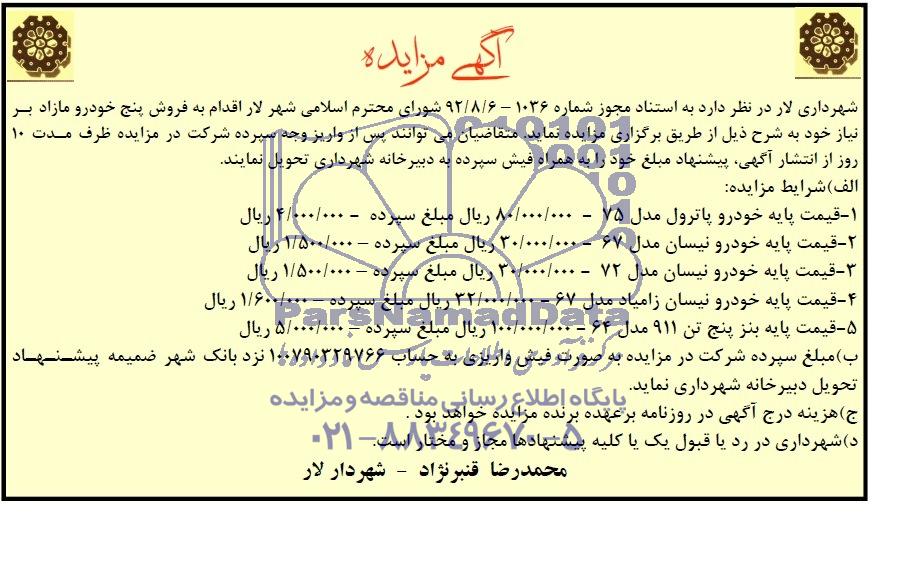 آگهی مزایده
شهرداری لار در نظر دارد به استناد مجوز شماره ۱۰۳۶ – ۹۲/۸/۶ شورای محترم اسلامی شهر لار اقدام به فروش پنج خودرو مازاد بـر
نیاز خود به شرح ذیل از طریق برگزاری مزایده نماید. متقاضیان می توانند پس از واریز وجه سپرده شرکت در مزایده ظرف مـدت ۱۰
روز از انتشار آگهی، پیشنهاد مبلغ خود را به همراه فیش سپرده به دبیرخانه شهرداری تحویل نمایند.
الف)شرایط مزایده:
۱-قیمت پایه خودرو پاترول مدل ۷۵ - ۸۰/۰۰۰/۰۰۰ ریال مبلغ سپرده - ۴/۰۰۰/۰۰۰ ریال
۲-قیمت پایه خودرو نیسان مدل ۶۷ - ۳۰/۰۰۰/۰۰۰ ریال مبلغ سپرده – ۱/۵۰۰/۰۰۰ ریال
۳-قیمت پایه خودرو نیسان مدل ۷۲ - ۳۰/۰۰۰/۰۰۰ ریال مبلغ سپرده – ۱/۵۰۰/۰۰۰ ریال
۴-قیمت پایه خودرو نیسان زامیاد مدل ۶۷ – ۳۲/۰۰۰/۰۰۰ ریال مبلغ سپرده – ۱/۶۰۰/۰۰۰ ریال
۵-قیمت پایه بنز پنج تن ۹۱۱ مدل ۶۴ - ۱۰۰/۰۰۰/۰۰۰ ریال مبلغ سپرده – ۵/۰۰۰/۰۰۰ ریال
ب)مبلغ سپرده شرکت در مزایده به صورت فیش واریزی به حساب ۱۰۰۷۹۰۳۲۹۷۶۶ نزد بانک شهر ضمیمه پیشـنـهـاد
تحویل دبیرخانه شهرداری نماید.
ج)هزینه درج آگهی در روزنامه برعهده برنده مزایده خواهد بود .
د)شهرداری در رد یا قبول یک یا کلیه پیشنهادها مجاز و مختار است.
محمدرضا قنبرنژاد - شهردار لار
ParsNamadData
پایگاه اطلاع رسانی مناقصه و مزایده
۰۲۱–۸۸۳۴۹۶۷۰–۵